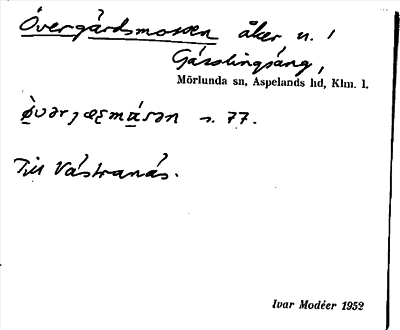 Övergårdsmossen åker n. 1
Gåsslingsäng,
Mörlunda sn, Aspelands hd, Klm. l.
s. 77.
Till Västranäs.
Ivar Modéer 1952